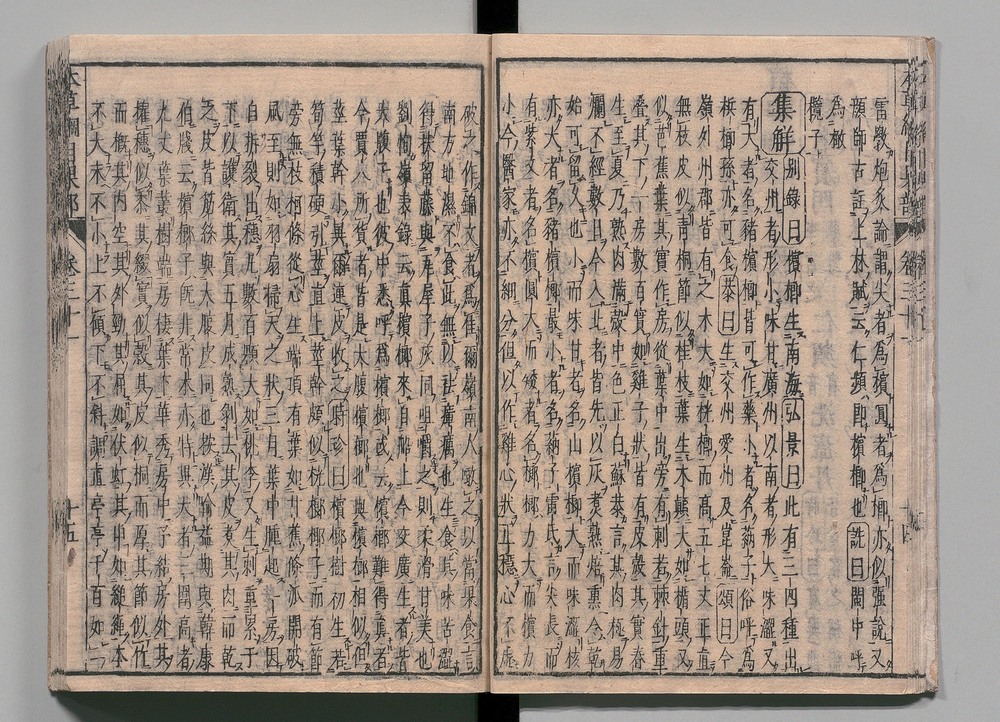 雷斆炮炙論謂尖者爲檳圓者爲榔亦似强說又
顏師古註上林賦云仁頻即檳榔也詵曰閩中呼
爲橄
欖子
集解別錄曰檳榔生南海弘景曰此有三四種出
交州者形小味甘廣州以南者形大味澀又
有大者名豬檳榔皆可作藥小者名蒳子俗呼爲
檳榔孫亦可食恭曰生交州愛州及崑崙頌曰今
嶺外州郡皆有之木大如桄榔而高五七丈正直
無枝皮似青桐節似桂枝葉生木顚大如楯頭又
似芭蕉葉其實作房從葉中出旁有刺若棘針重
疊其下一房數百實如雞子狀皆有皮殼其實春
生至夏乃熟肉滿殼中色正白蘇恭言其肉極易
爛不經數日今入北者皆先以灰煮熟焙熏令乾
始可留久也小而味甘者名山檳榔大而味澀核
亦大者名豬檳榔最小者名蒳子雷氏言尖長而
有紫文者名檳圓大而矮者名榔榔力大而檳力
小今醫家亦不細分但以作雞心狀正穩心不虛
破之作錦文者爲佳爾嶺南人啖之以當果食言
南方地濕不食此無以祛瘴癘也生食其味苦澀
得扶留藤與瓦屋子灰同咀嚼之則柔滑甘美也
劉恂嶺表錄云眞檳榔來自舶上今交廣生者皆
大腹子也彼中悉呼爲檳榔或云檳榔難得眞者
今賈人所貨者皆是大腹檳榔也與檳榔相似但
莖葉幹小異爾連皮收之時珍曰檳榔樹初生若
筍竿積硬引莖直上莖幹頗似桄榔椰子而有節
旁無枝柯條從心生端頂有葉如甘蕉條派開破
風至則如羽扇掃天之狀三月葉中腫起一房因
自拆裂出穗凡數百顆大如桃李又生刺重累于
下以護衛其實五月成熟剝去其皮煮其肉而乾
之皮皆筋絲與大腹皮同也按漢喻益期與韓康
伯牋云檳榔子既非常木亦特異大者三圍高者
九丈葉叢樹端房棲葉下華秀房中子結房外其
擢穗似禾其綴實似穀其皮似桐而厚其節似竹
而概其內空其外勁其屈如伏虹其申如縋繩本
不大末不小上不傾下不斜調直亭亭千百如一